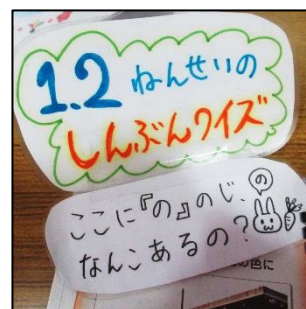 1.2 ねんせいの
しんぶんクイズ
ここに『の』のじ、の
なんこあるの?
の色に